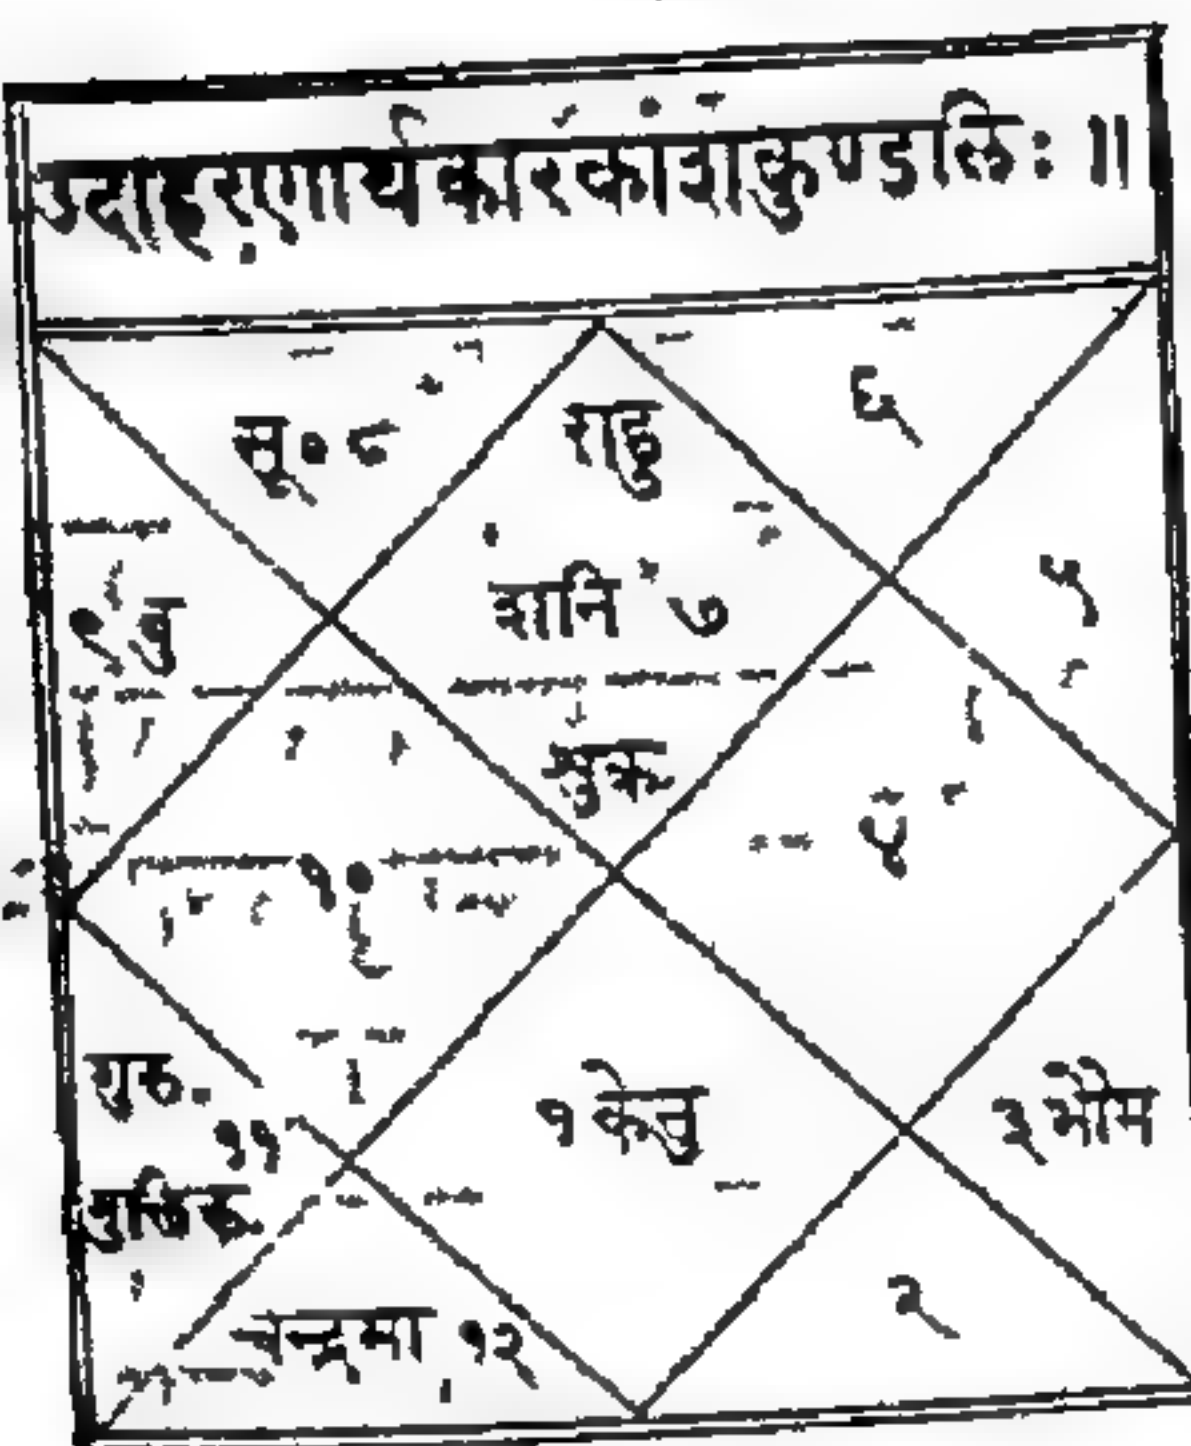 उदाहरणार्थकारकांशकुण्डलिः ॥
सू॰ ८
राहु
६
शनि ७
९ बु
५
शुक्र
४
१०
गुरु.
११
गुलिक.
१ केतु
३ भौम
चन्द्रमा १२
२